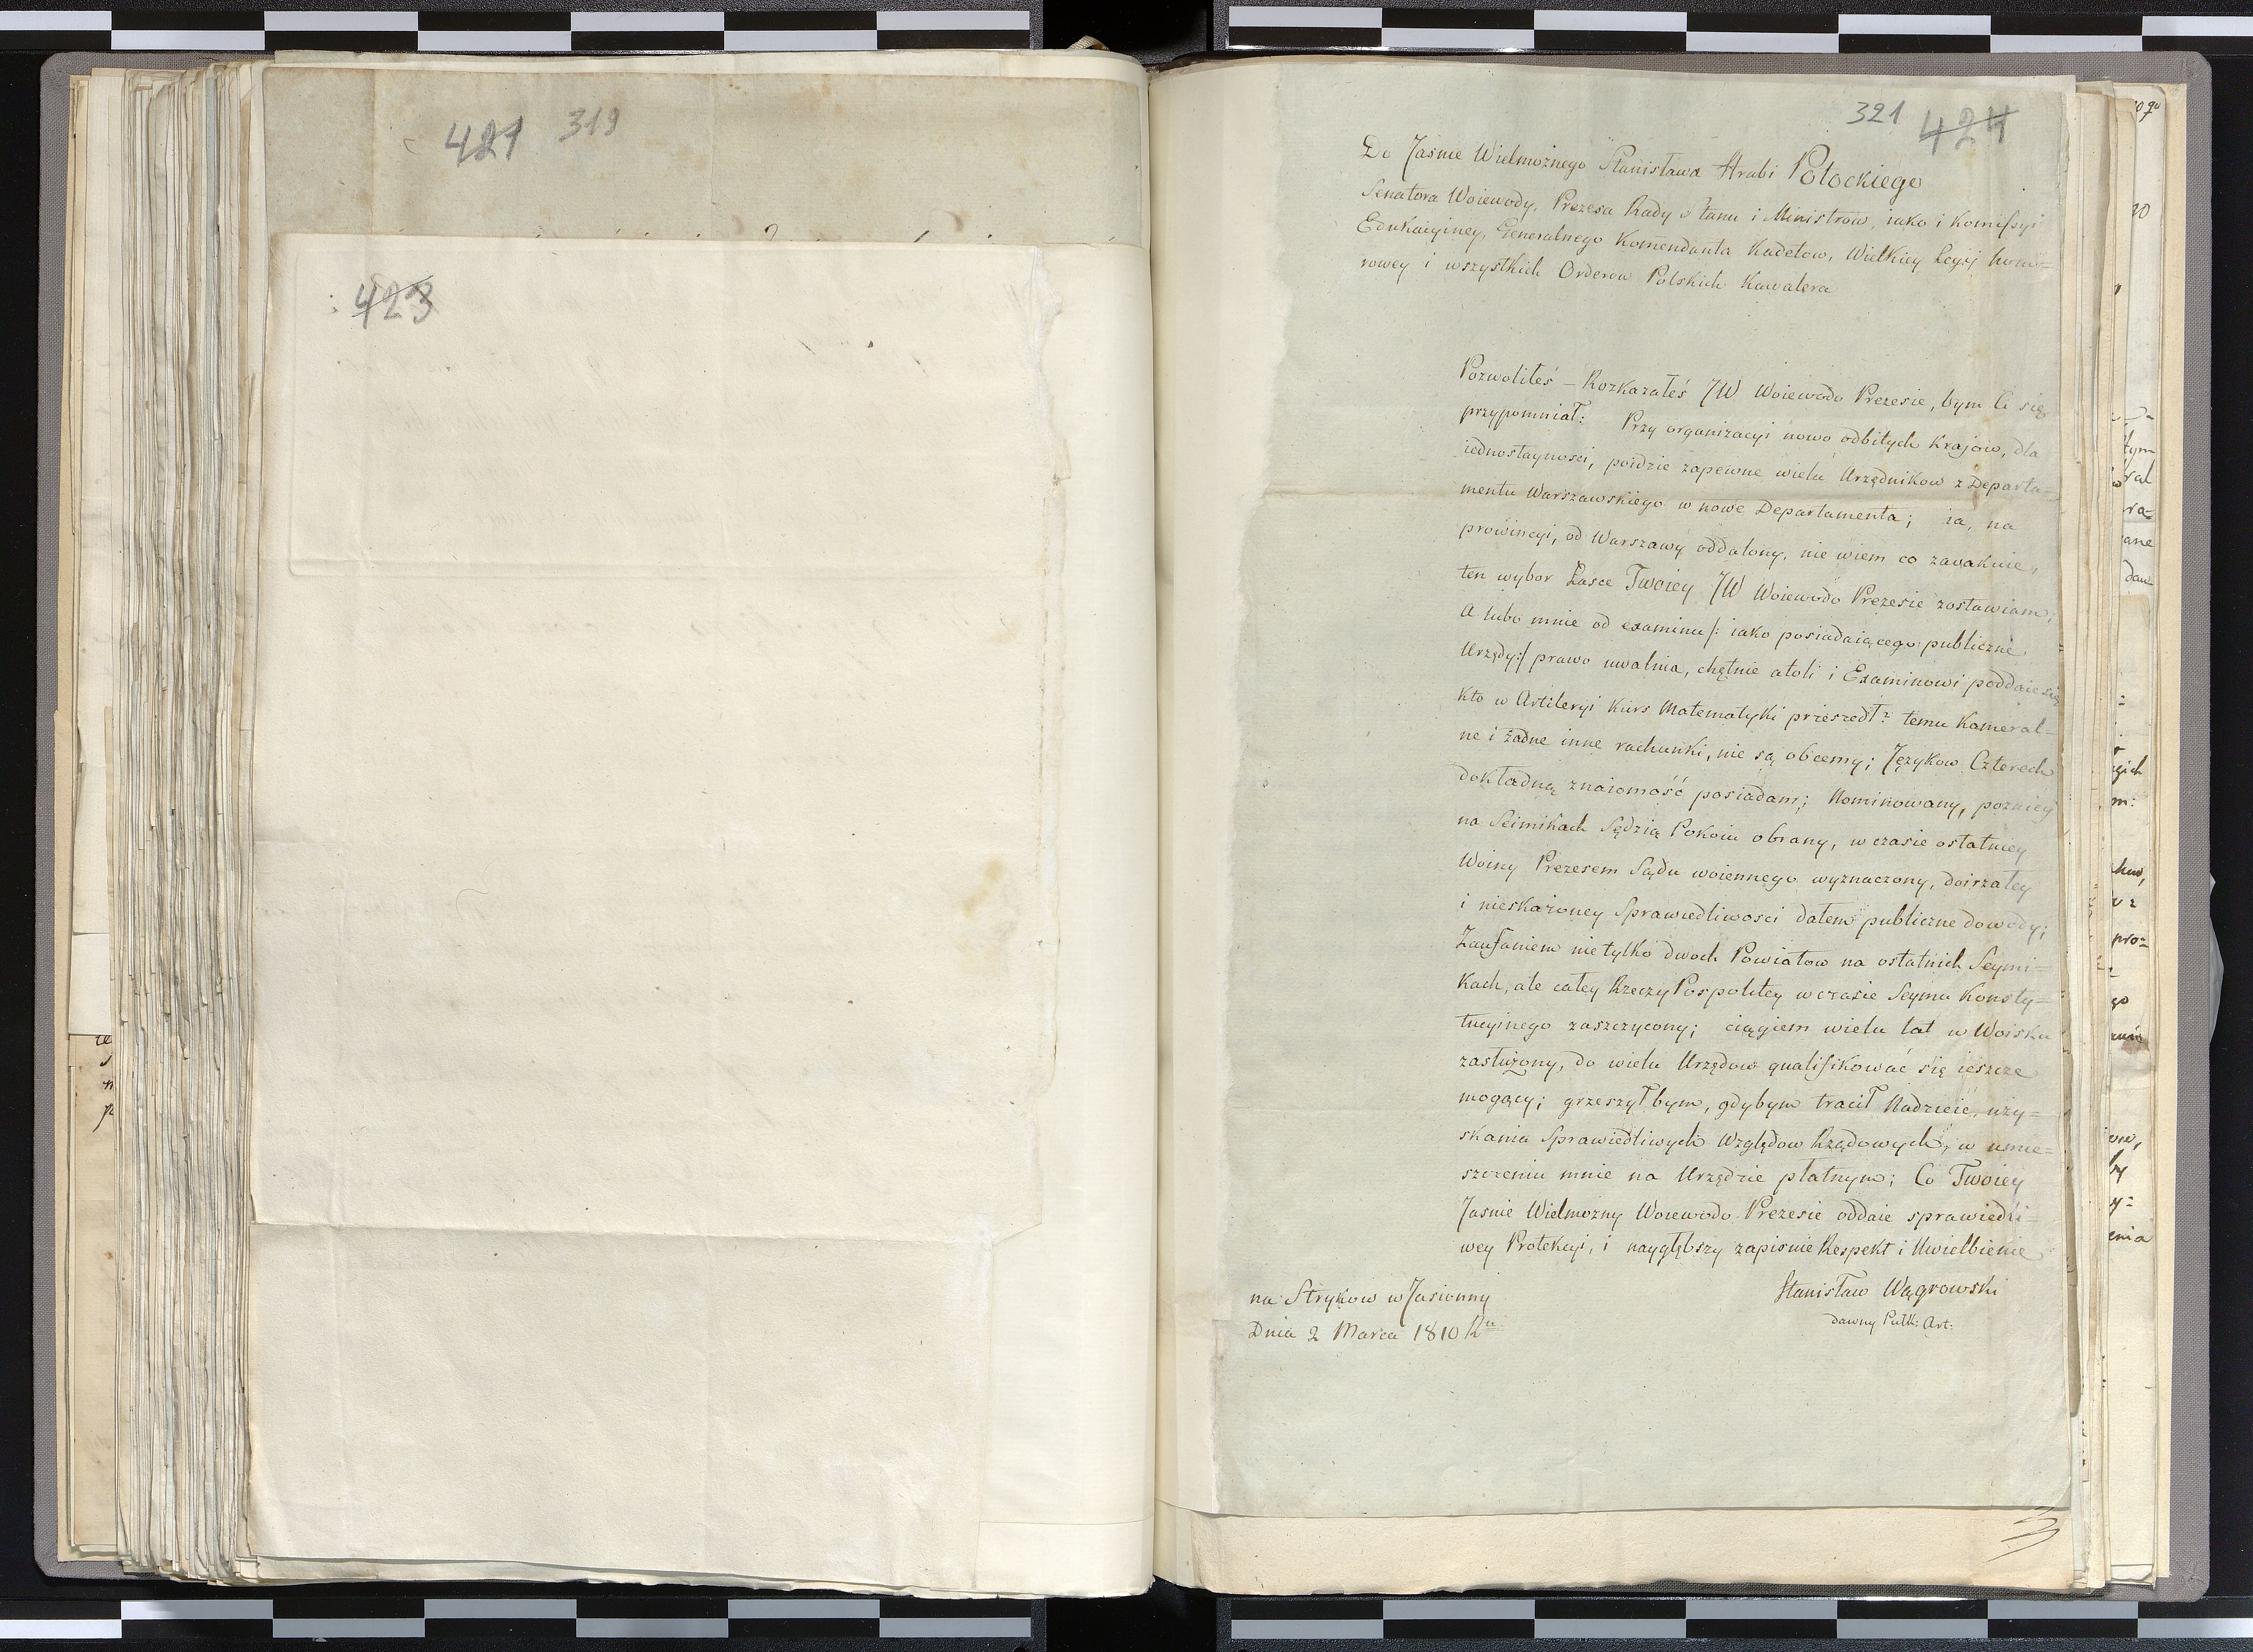 421 319
423
321 424
Do Jasnie Wielmożnego Stanisława Hrabi Potockiego
Senatora Woiewody, Prezesa Rady Stanu i Ministrow, iako i Komissyi
Edukacyiney, Generalnego Komendanta Kadetow, Wielkiey Legij hono=
rowey i wszystkich Orderow Polskich Kawalera
Pozwoliłeś – Rozkazałeś JW Woiewodo Prezesie, bym Ci się
przypomniał: Przy organizacyi nowo odbitych Krajow, dla
iednostaynosci, poidzie zapewne wielu Urzędnikow z Departa=
mentu Warszawskiego w nowe Departamenta; ia, na
prowincyi, od Warszawy oddalony, nie wiem co zawakuie,
ten wybor Łasce Twoiey JW Woiewodo Prezesie zostawiam;
A lubo mnie od examinu /: iako posiadaiącego publiczne
Urzędy:/ prawo uwalnia, chętnie atoli i Examinowi poddaie się
kto w Artileryi Kurs Matematyki przeszedł? temu Kameral=
ne i żadne inne rachunki, nie są obcemy; Językow Czterech
dokładną znaiomość posiadam; Nominowany, pozniey
na Seimikach Sędzią Pokoiu obrany, w czasie ostatniey
Woiny Prezesem Sądu woiennego wyznaczony, doirzałey
i nieskażoney Sprawiedliwosci dałem publiczne dowody;
Zaufaniem nie tylko dwoch Powiatow na ostatnich Seymi=
kach, ale całey Rzeczy Pospolitey w czasie Seymu Konsty=
tucyinego zaszczycony; ciągiem wielu lat w Woisku
zasłużony, do wielu Urzędow qualifikować się ieszcze
mogący; grzeszyłbym, gdybym tracił Nadzieie, uzy=
skania Sprawiedliwych Względow Rządowych, w umie=
szczeniu mnie na Urzędzie płatnym; Co Twoiey
Jasnie Wielmożny Woiewodo Prezesie oddaie sprawiedli=
wey Protekcyi, i naygłębszy zapisuie Respekt i Uwielbienie
Stanisław Wągrowski
dawny Pułk: Art:
na Stryków w Jasionny
Dnia 2 Marca 1810 Ru